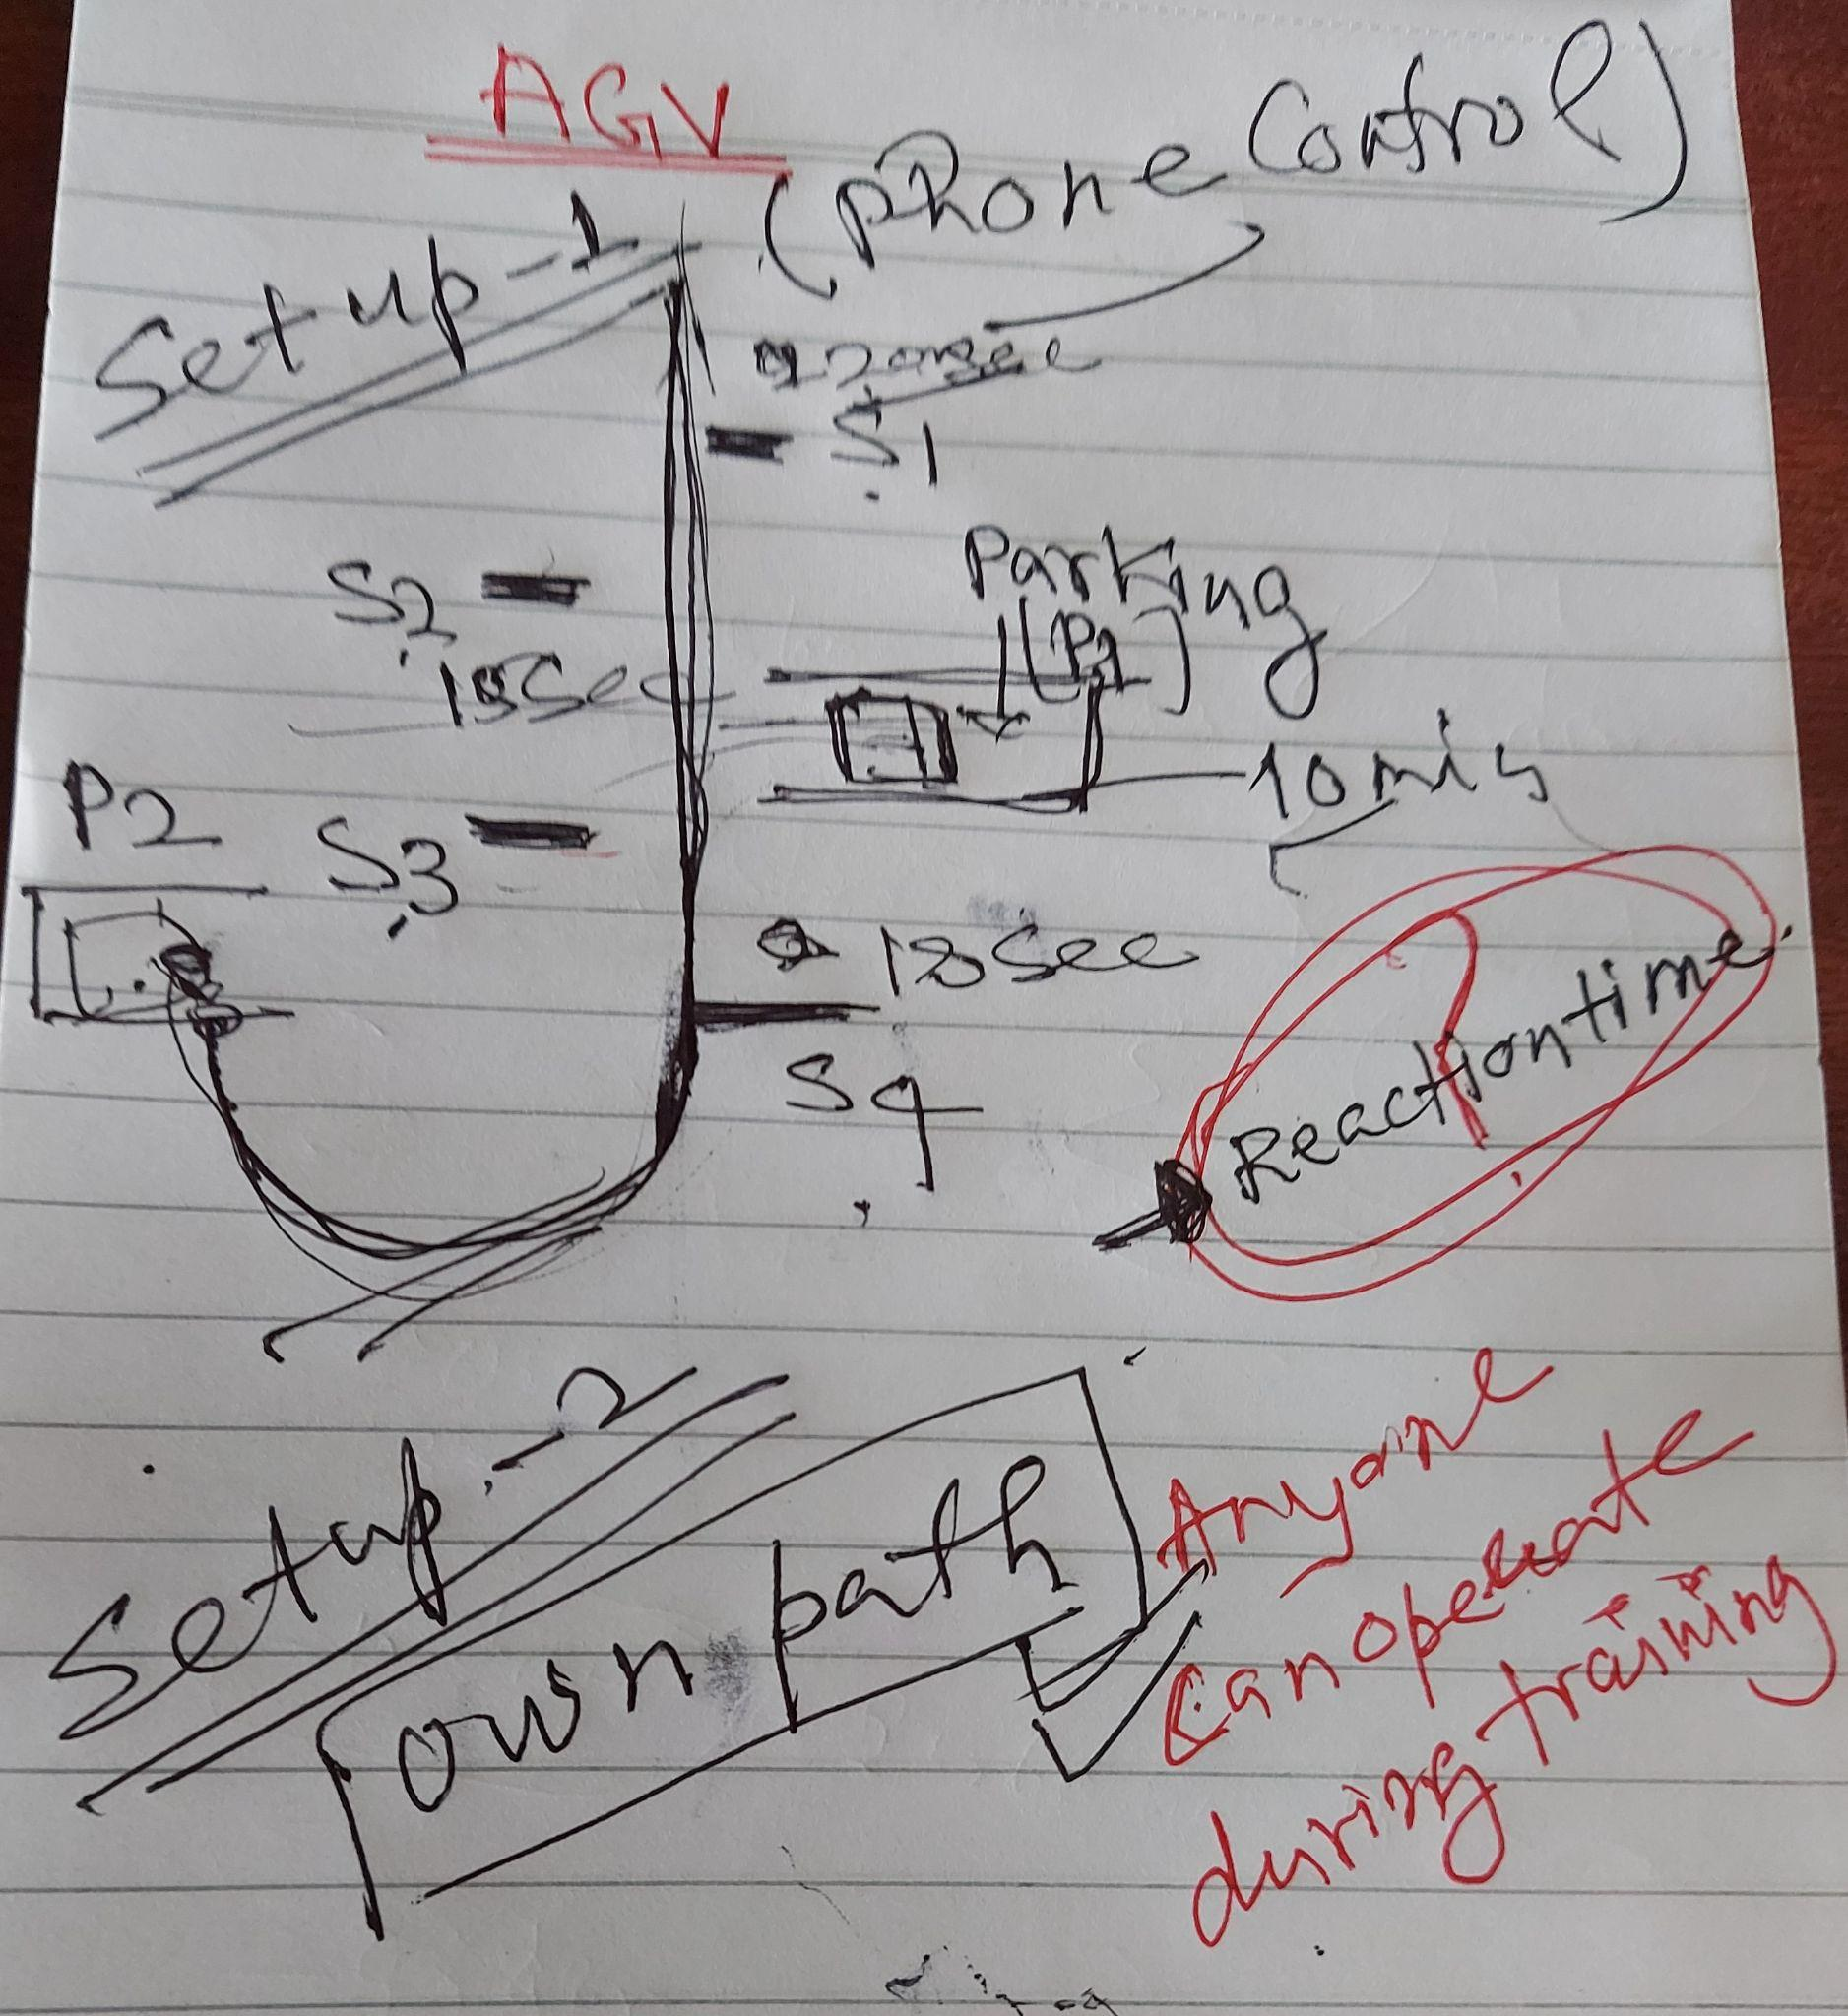 AGV
(Phone Control)
Setup-1
S1
S2
Parking
(P1)
10 min
P2
S3
sec
S4
Reaction time
Setup-2
own path
Anyone
can operate
during training